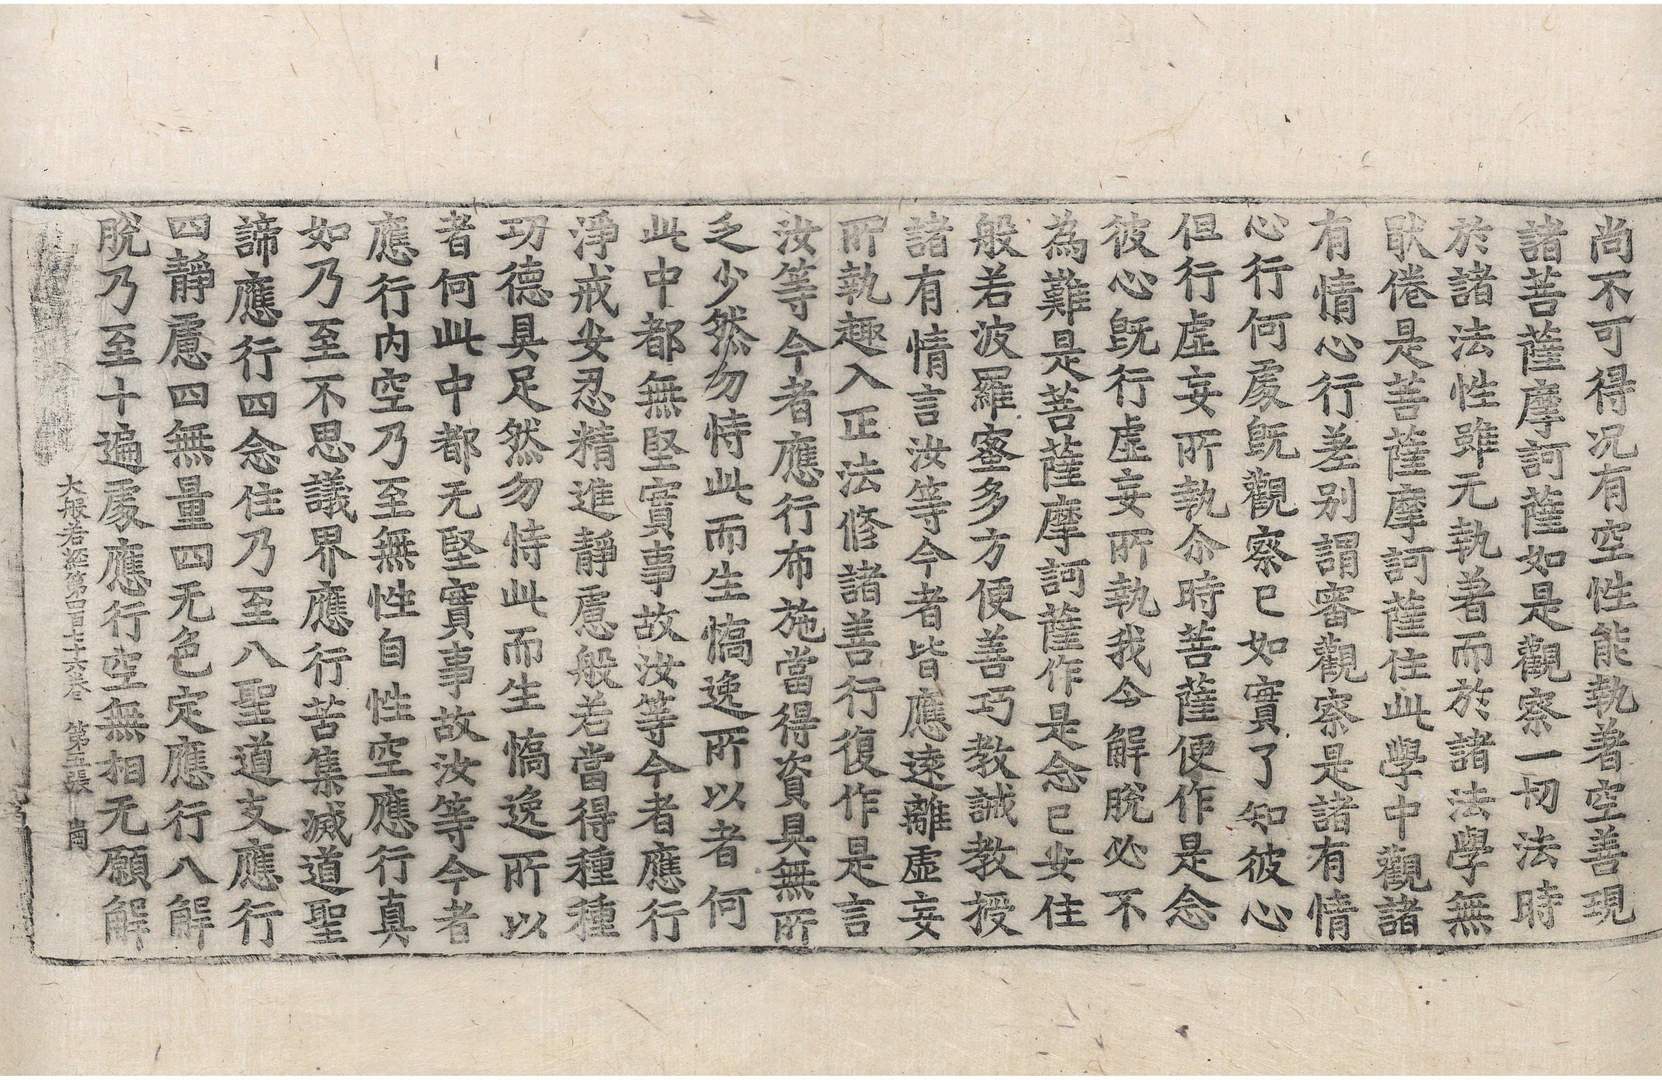 尚不可得况有空性能執著空善現
諸菩薩摩訶薩如是觀察一切法時
於諸法性雖无執著而於諸法學無
猒倦是菩薩摩訶薩住此學中觀諸
有情心行差别謂審觀察是諸有情
心行何處旣觀察已如實了知彼心
但行虛妄所執尒時菩薩便作是念
彼心旣行虛妄所執我令解脫必不
為難是菩薩摩訶薩作是念已安住
般若波羅蜜多方便善巧教誡教授
諸有情言汝等今者皆應遠離虛妄
所執趣入正法修諸善行復作是言
汝等今者應行布施當得資具無所
乏少然勿恃此而生憍逸所以者何
此中都無堅實事故汝等今者應行
淨戒安忍精進靜慮般若當得種種
功德具足然勿恃此而生憍逸所以
者何此中都无堅實事故汝等今者
應行內空乃至無性自性空應行真
如乃至不思議界應行苦集滅道聖
諦應行四念住乃至八聖道支應行
四靜慮四無量四无色定應行八解
脫乃至十遍處應行空無相无願解
大般若經第四百七十六卷 第五張 崗